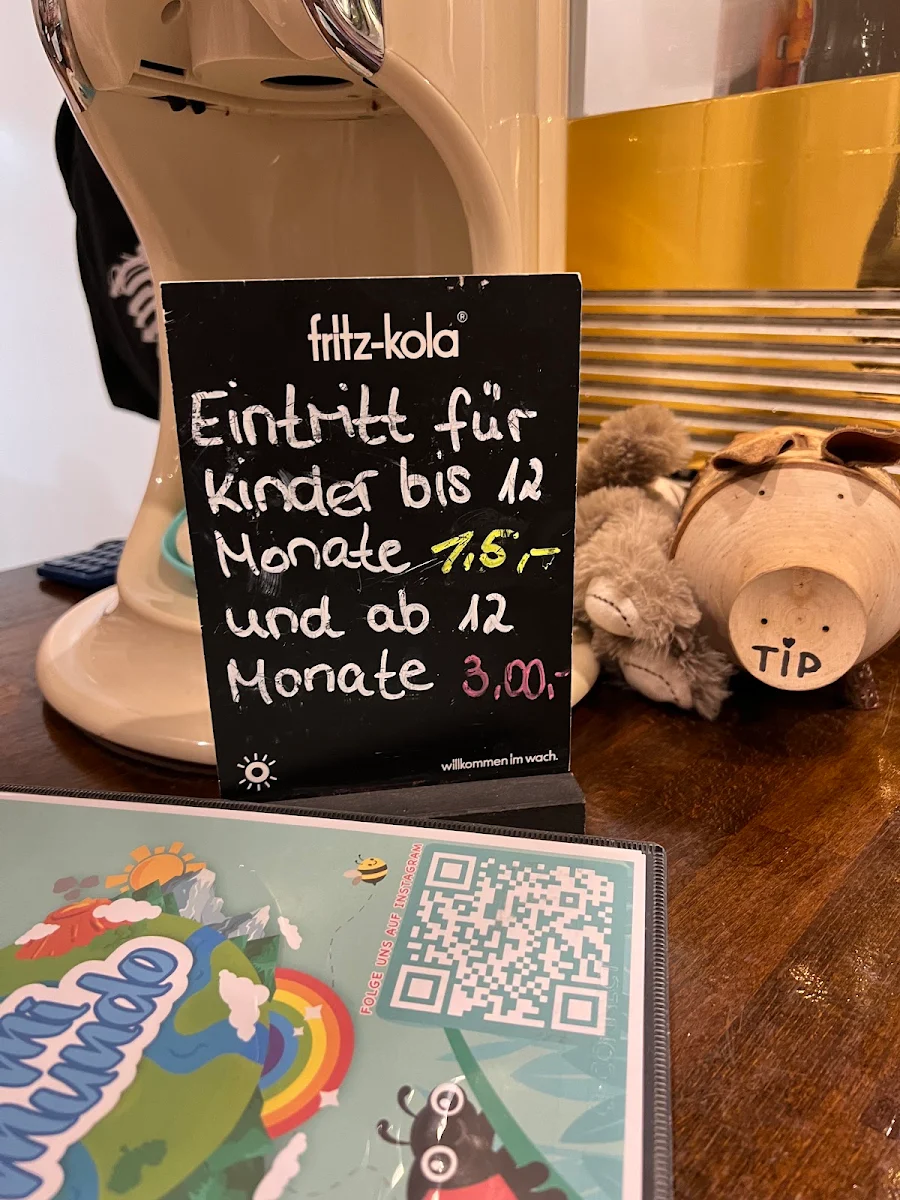 fritz-kola®
Eintritt für
Kinder bis 12
Monate 1,5,-
und ab 12
Monate 3,00,-
willkommen im wach.
TIP
FOLGE UNS AUF INSTAGRAM
mi
mundo